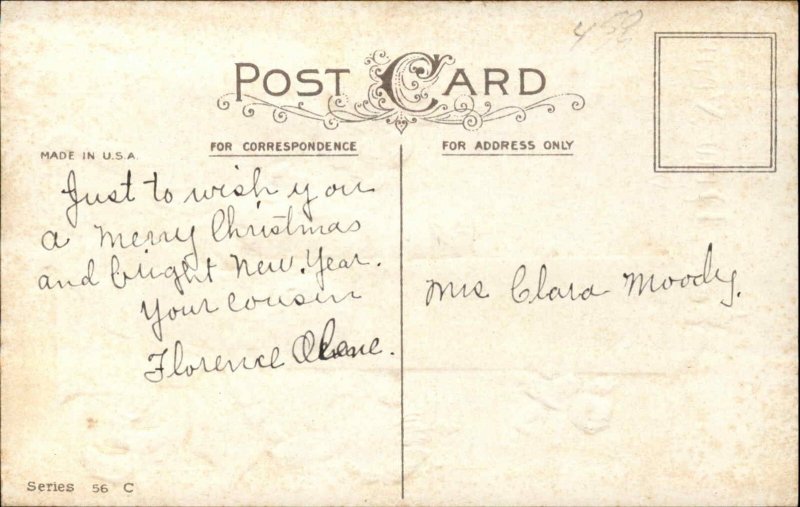 450
POST CARD
FOR CORRESPONDENCE
FOR ADDRESS ONLY
MADE IN U.S.A.
Just to wish you
a Merry Christmas
and bright New Year.
Your cousin
Florence
Mrs Clara Moody.
Series 56 C